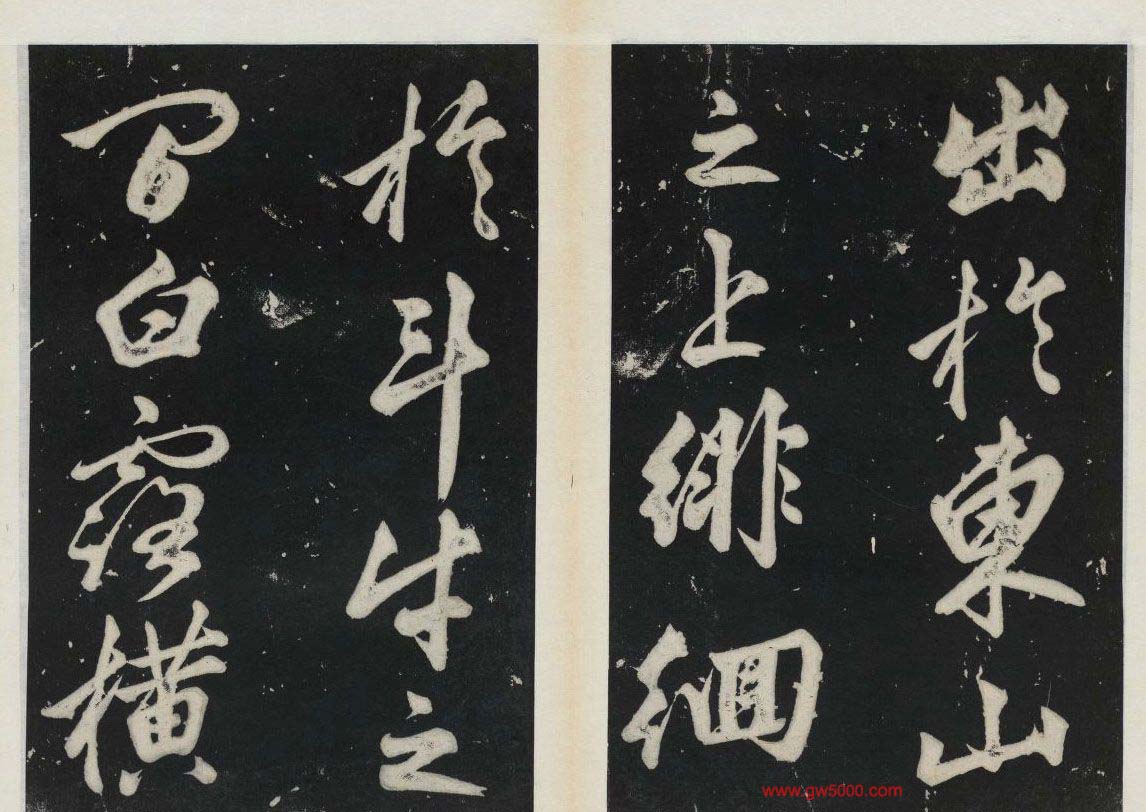 出於東山
之上徘徊
於斗牛之
間白露橫
www.gw5000.com